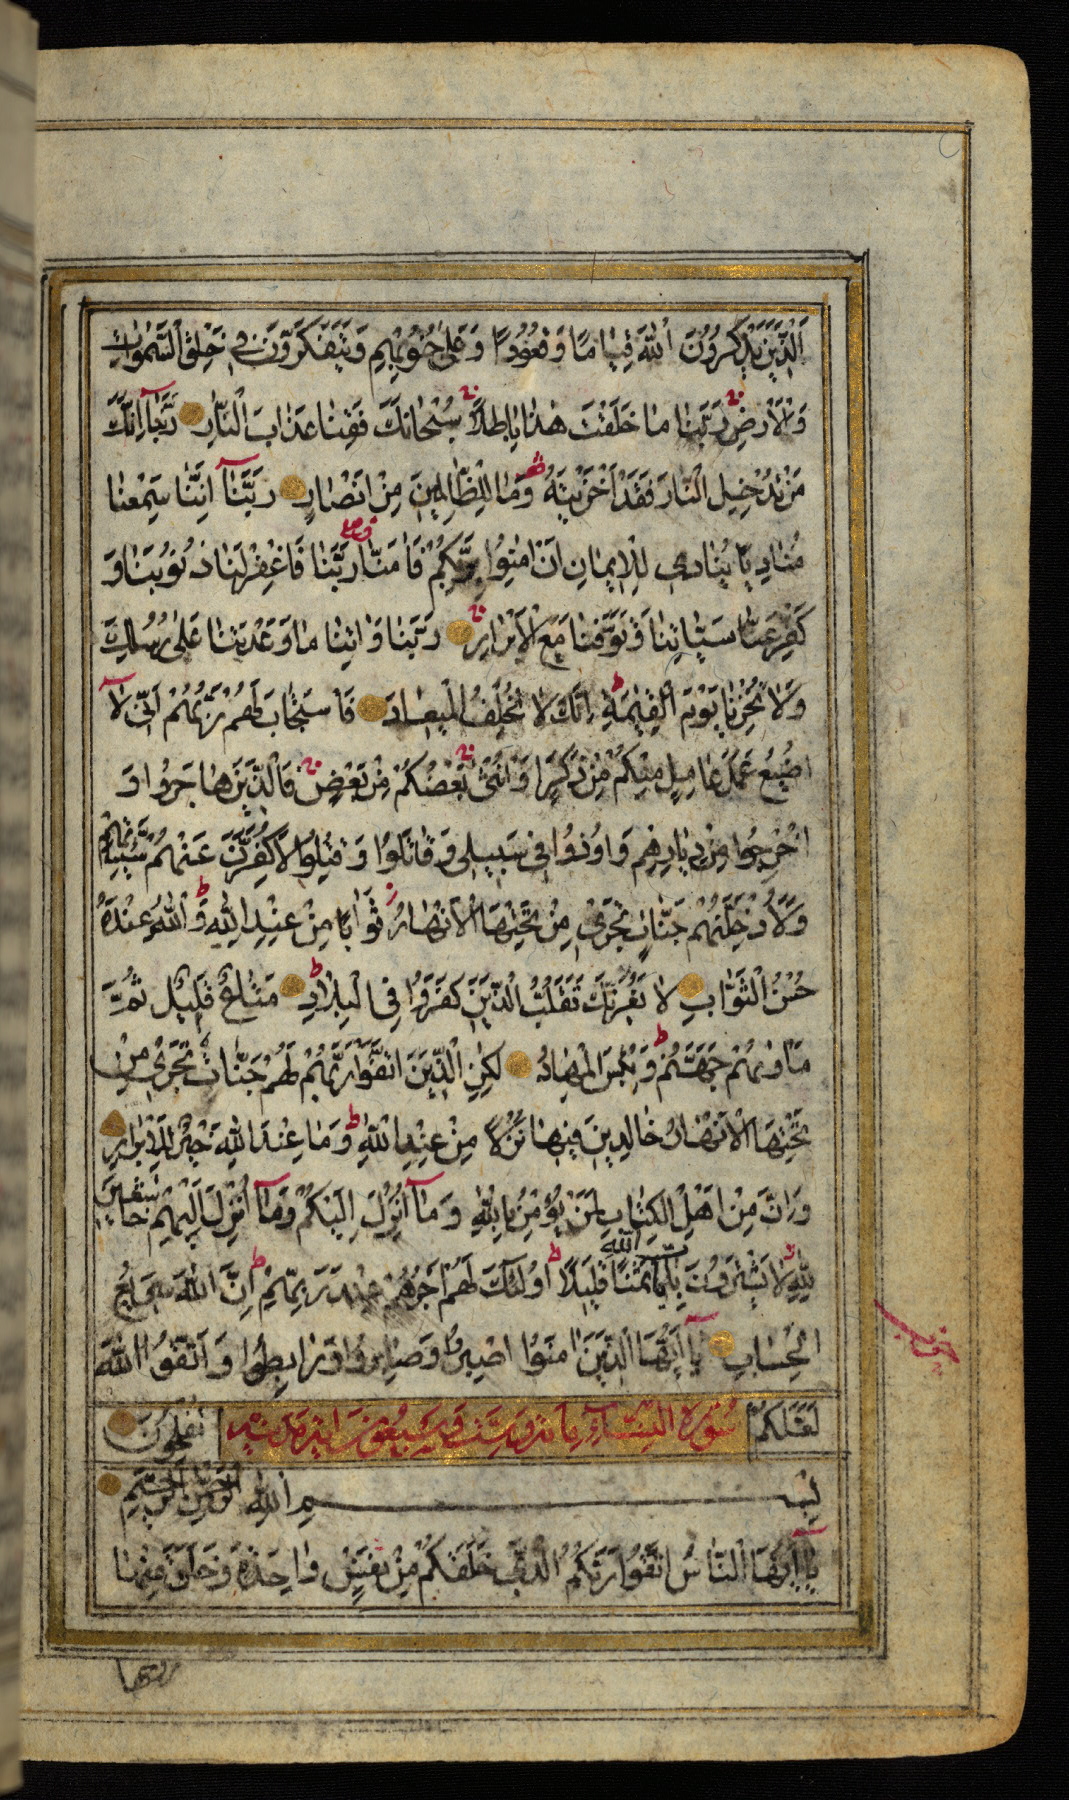 اَلَّذِينَ يَذْكُرُونَ اللهَ قِيَامًا وَقُعُودًا وَعَلىٰ جُنُوبِهِم وَيَتَفَكَّرُونَ فِي خَلْقِ السَّمٰوَاتِ
وَالْاَرْضِ رَبَّنَا مَا خَلَقْتَ هٰذَا بَاطِلًا سُبْحَانَكَ فَقِنَا عَذَابَ النَّارِ رَبَّنَا اِنَّكَ
مَنْ تُدْخِلِ النَّارَ فَقَدْ اَخْزَيْتَهُ وَمَا لِلظَّالِمِينَ مِنْ اَنْصَارٍ رَبَّنَا اِنَّنَا سَمِعْنَا
مُنَادِيًا يُنَادِي لِلْاِيمَانِ اَنْ اٰمِنُوا بِرَبِّكُمْ فَاٰمَنَّا رَبَّنَا فَاغْفِرْ لَنَا ذُنُوبَنَا وَ
كَفِّرْ عَنَّا سَيِّاٰتِنَا وَتَوَفَّنَا مَعَ الْاَبْرَارِ رَبَّنَا وَاٰتِنَا مَا وَعَدْتَنَا عَلىٰ رُسُلِكَ
وَلَا تُخْزِنَا يَوْمَ الْقِيٰمَةِ اِنَّكَ لَا تُخْلِفُ الْمِيعَادَ فَاسْتَجَابَ لَهُمْ رَبُّهُمْ اَنِّي لَا
اُضِيعُ عَمَلَ عَامِلٍ مِنْكُمْ مِنْ ذَكَرٍ اَوْ اُنْثىٰ بَعْضُكُمْ مِنْ بَعْضٍ فَالَّذِينَ هَاجَرُوا وَ
اُخْرِجُوا مِنْ دِيَارِهِم وَاُوذُوا فِي سَبِيلِي وَقَاتَلُوا وَقُتِلُوا لَاُكَفِّرَنَّ عَنْهُمْ سَيِّئَاتِهِمْ
وَلَاُدْخِلَنَّهُمْ جَنَّاتٍ تَجْرِي مِنْ تَحْتِهَا الْاَنْهَارُ ثَوَابًا مِنْ عِنْدِ اللهِ وَاللهُ عِنْدَهُ
حُسْنُ الثَّوَابِ لَا يَغُرَّنَّكَ تَقَلُّبُ الَّذِينَ كَفَرُوا فِي الْبِلَادِ مَتَاعٌ قَلِيلٌ ثُمَّ
مَاْوٰىهُمْ جَهَنَّمُ وَبِئْسَ الْمِهَادُ لٰكِنِ الَّذِينَ اتَّقَوْا رَبَّهُمْ لَهُمْ جَنَّاتٌ تَجْرِي مِنْ
تَحْتِهَا الْاَنْهَارُ خَالِدِينَ فِيهَا نُزُلًا مِنْ عِنْدِ اللهِ وَمَا عِنْدَ اللهِ خَيْرٌ لِلْاَبْرَارِ
وَاِنَّ مِنْ اَهْلِ الْكِتَابِ لَمَنْ يُؤْمِنُ بِاللهِ وَمَا اُنْزِلَ اِلَيْكُمْ وَمَا اُنْزِلَ اِلَيْهِمْ خَاشِعِينَ
لِلّٰهِ لَا يَشْتَرُونَ بِاٰيَاتِ اللهِ ثَمَنًا قَلِيلًا اُولٰئِكَ لَهُمْ اَجْرُهُمْ عِنْدَ رَبِّهِمْ اِنَّ اللهَ سَرِيعُ
الْحِسَابِ يَا اَيُّهَا الَّذِينَ اٰمَنُوا اصْبِرُوا وَصَابِرُوا وَرَابِطُوا وَاتَّقُوا اللهَ
لَعَلَّكُمْ تُفْلِحُونَ
سُورَةُ النِّسَاءِ مائة وست وسبعون اية مدنية
بِسْمِ اللهِ الرَّحْمٰنِ الرَّحِيمِ
يَا اَيُّهَا النَّاسُ اتَّقُوا رَبَّكُمُ الَّذِي خَلَقَكُمْ مِنْ نَفْسٍ وَاحِدَةٍ وَخَلَقَ مِنْهَا
زوجها